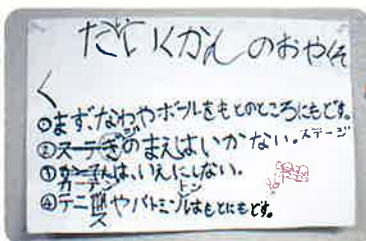 たいいくかんのおやくそ
く
①まず、なわやボールをもとのところにもどす。
②ステージのまえはいかない。ステージ
③カーテンは、いえにしない。
④テニスやバトミントンはもとにもどす。